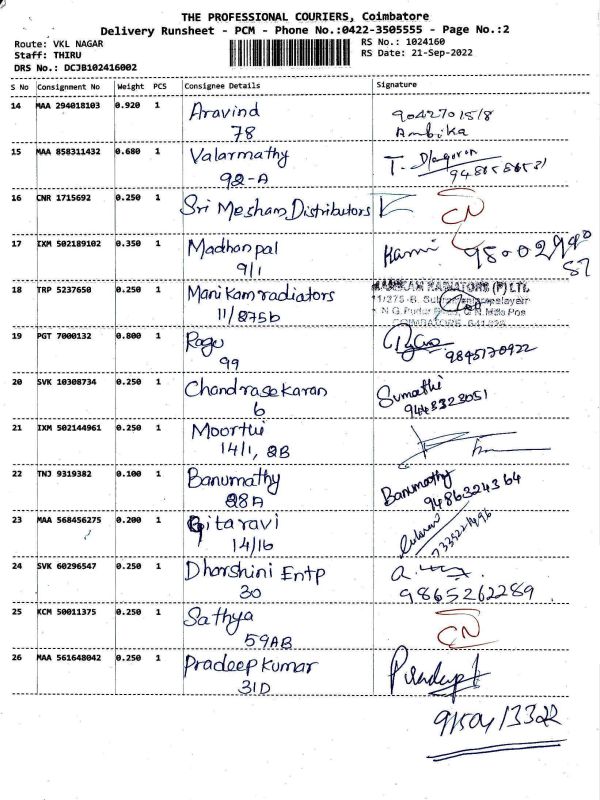 THE PROFESSIONAL COURIERS, Coimbatore
Delivery Runsheet - PCM - Phone No.:0422-3505555 - Page No.:2
Route: VKL NAGAR
RS No.: 1024160
Staff: THIRU
RS Date: 21-Sep-2022
DRS No.: DCJB102416002
S No Consignment No Weight PCS Consignee Details Signature
14 MAA 294018103 0.920 1 Aravind
78 Ambika
15 MAA 858311432 0.680 1 Valarmathy
92-A
16 CNR 1715692 0.250 1 Sri Mesham Distributors CN
17 IXM 502189102 0.350 1 Madhanpal
9/1
18 TRP 5237650 0.250 1 Manikam radiators
11/875b
19 PGT 7000132 0.800 1 Ragu
99 9845170922
20 SVK 10308734 0.250 1 Chandrasekaran Sumathi
6 9443323051
21 IXM 502144961 0.250 1 Moorthi
14/1, 2B
22 TNJ 9319382 0.100 1 Banumathy Banumathy
28A 9486324364
23 MAA 568456275 0.200 1 Gitaravi
14/16
24 SVK 60296547 0.250 1 Dharshini Entp
30 9865262289
25 KCM 50011375 0.250 1 Sathya CN
59AB
26 MAA 561648042 0.250 1 Pradeep Kumar
31D